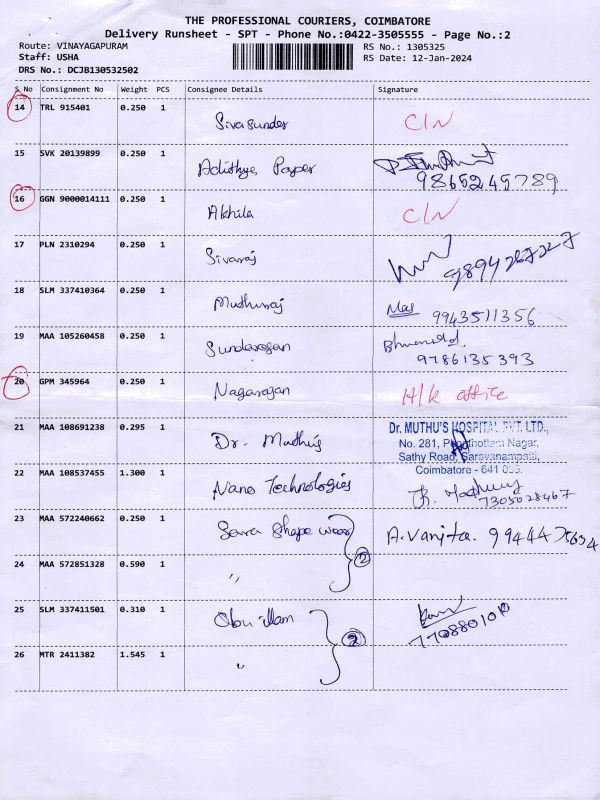 THE PROFESSIONAL COURIERS, COIMBATORE
Delivery Runsheet - SPT - Phone No.:0422-3505555 - Page No.:2
Route: VINAYAGAPURAM RS No.: 1305325
Staff: USHA RS Date: 12-Jan-2024
DRS No.: DCJB130532502
S No Consignment No Weight PCS Consignee Details Signature
14 TRL 915401 0.250 1 Sivasunder C/N
15 SVK 20139899 0.250 1 Adithya Paper
9865245789
16 GGN 9000014111 0.250 1 Akhila C/N
17 PLN 2310294 0.250 1 Sivaraj
18 SLM 337410364 0.250 1 Muthuraj 9943511356
19 MAA 105260458 0.250 1 Sundarajan
9786135393
20 GPM 345964 0.250 1 Nagarajan H/k office
21 MAA 108691238 0.295 1 Dr. Muthu's Dr. MUTHU'S HOSPITAL PVT. LTD.,
No. 281, Nagar,
Sathy Road, Saravanampatti,
Coimbatore - 641 035.
22 MAA 108537455 1.300 1 Nano Technologies
7305028467
23 MAA 572240662 0.250 1 Sara Shape wear A. Vanita.
24 MAA 572851328 0.590 1 " 2
25 SLM 337411501 0.310 1
26 MTR 2411382 1.545 1 " 2